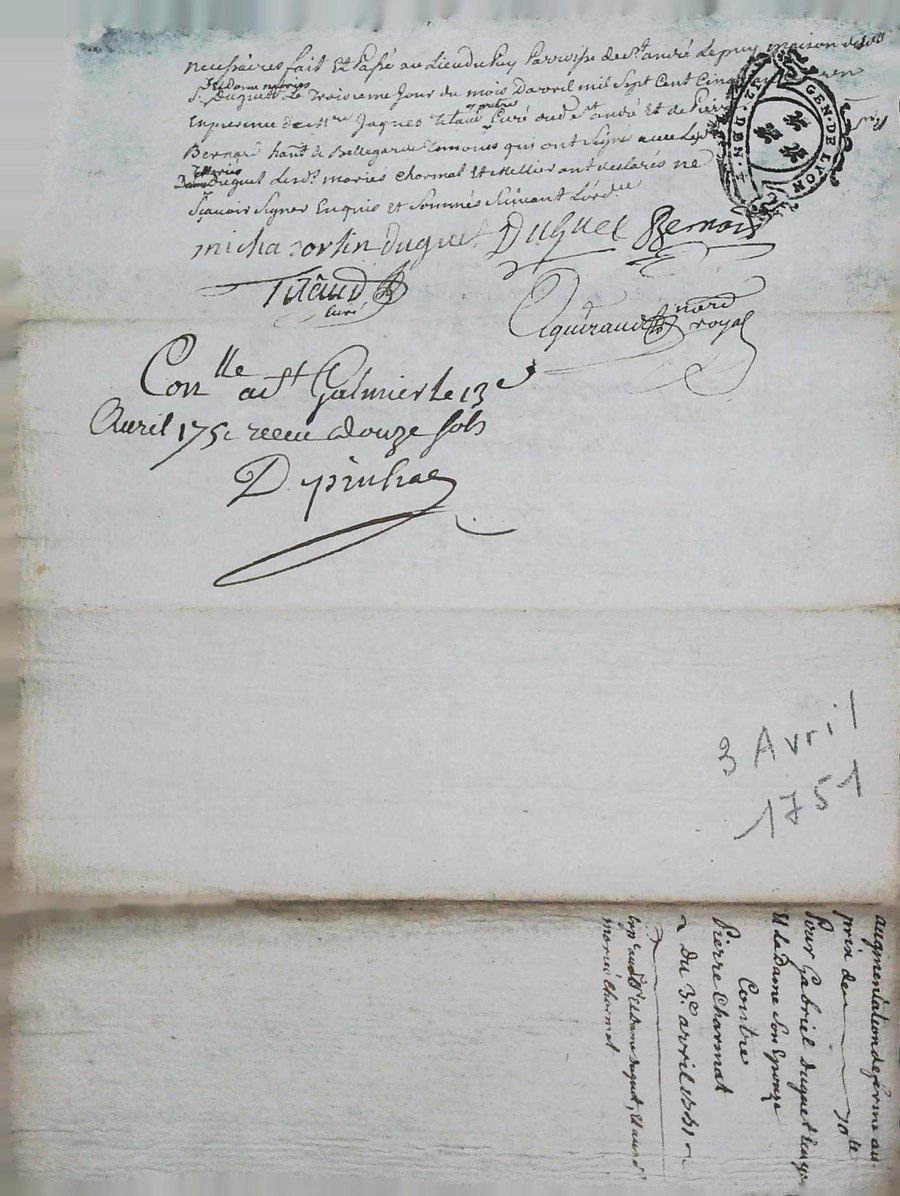 necessaires fait Et Passé au Lieu du Puy Parroisse de st andré Le puy maison
Et dame mariés
sr Duguet Le Troisieme Jour du mois Davril mil Sept Cent Cinq
En presence de mre Jaques Titaud Curé dud st andré Et de Pierre
Bernard hant de Bellegarde Temoins qui ont Signé avec Les
mariés
Duguet Lesds mariés Charmat Et Mellier ont declarés ne
Sçavoir Signer Enquis et Sommés Suivant L'ordce
GEN. DE LYON
12. DEN. T
micha Duguet Duguet Bernard
Titaud
curé
Aguiraud nore
royal
Conlle a st Galmier le 13e
Avril 175 receu douze sols
D
3 Avril
1751
augmentation de ferme au
prix de 70 lt
Pour Gabriel Duguet
Et La Dame Son Epouze
Contre
Pierre Charmat
Du 3e avril 1751
Expe aud sr Et dame Duguet, Et aux d
mariés Charmat